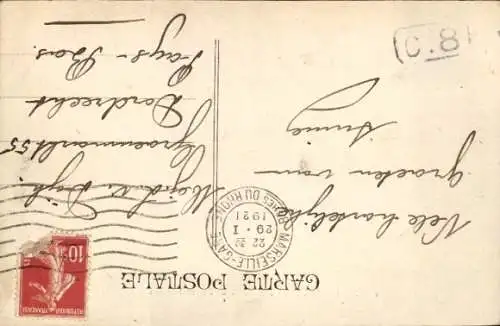 CARTE POSTALE
MARSEILLE-GARE
22 30
29 - 1
1921
BCHES DU RHONE
10
REPUBLIQUE FRANÇAISE
Vele hartelijke
groeten van
Annie
Mejuffr.
Groenmarkt 55
Dordrecht
Pays-Bas.
C.8